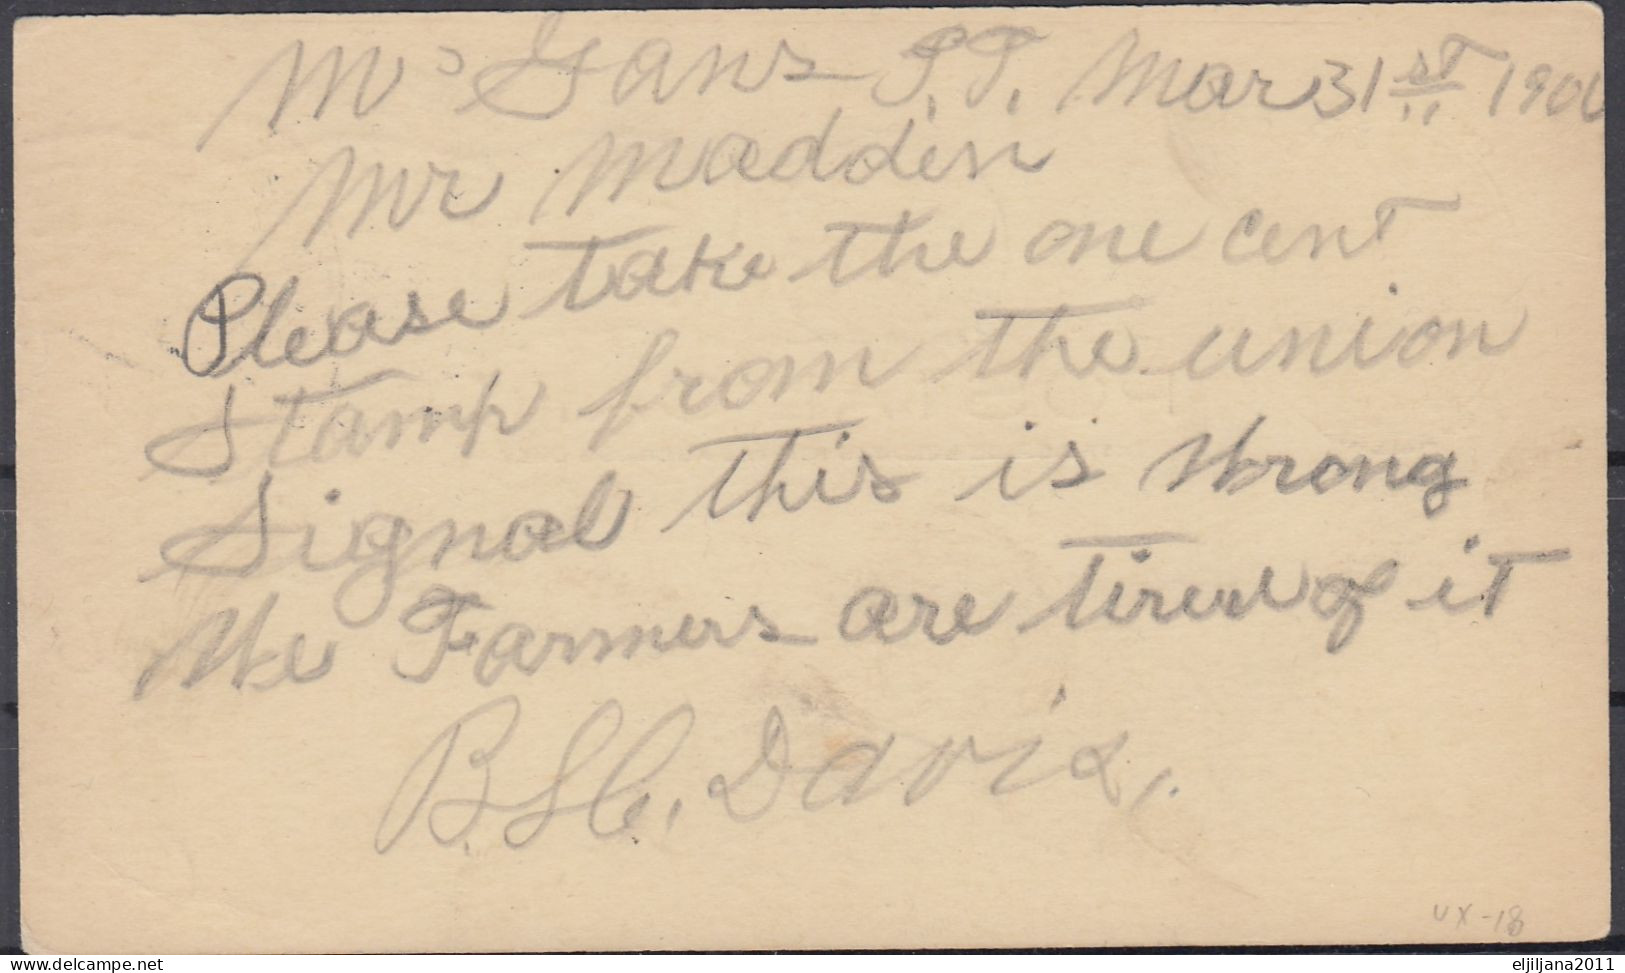 Mc Gans I.T. Mar 31st 1900
Mr Madden
Please take the one cent
Stamp from the union
Signal this is strong
the Farmers are tired of it
B. Davis,
UX-18
www.delcampe.net
eljiljana2011